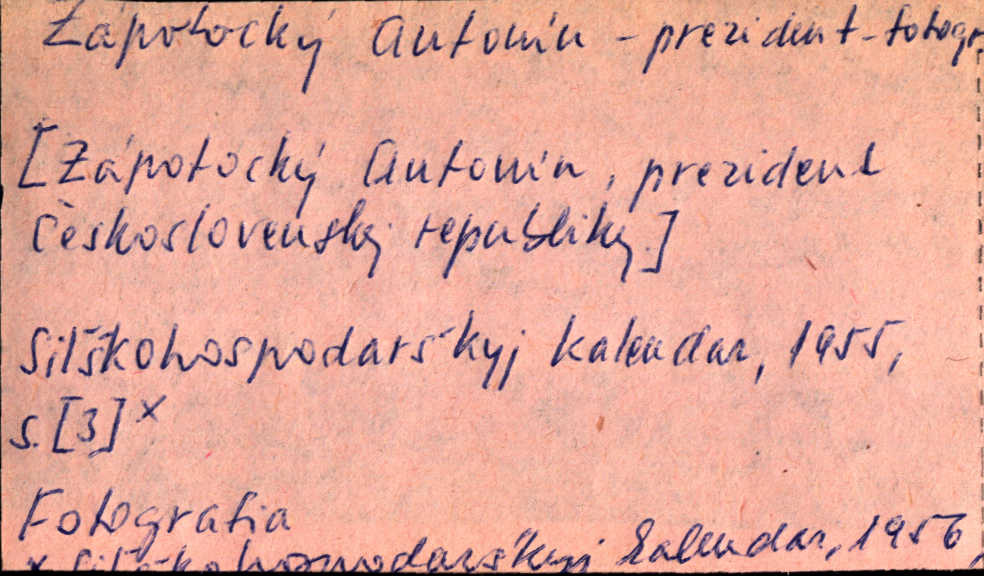 Zápotocký Antonín - prezident - fotogr.
[Zápotocký Antonín, prezident
Československej republiky.]
Silškohospodarśkyj kalendar, 1955,
s. [3] x
Fotografia
x Silśkohospodarśkyj kalendar, 1956,